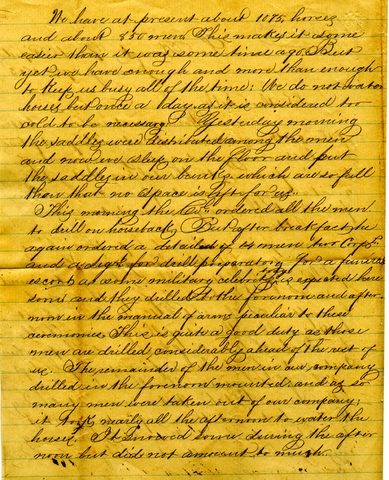 We have at present about 1075, horses
and about 850 men This makes it some
easier than it was some time ago. But
yet we have enough and more than enough
to keep us busy all of the time. We do not water
horses but once a day, as it is considered too
cold to be necessary. Yesterday morning
the saddles were distributed among the men
and now we sleep on the floor and put
the saddles in our bunks which are so full
then that no space is left for us.
This morning the ordered all the men
to drill on horseback, But after breakfast he
again ordered a detail of men two Corp's
and a Sergt for drill preparatory for a funeral
escort as some military celebrity is expected here
soon and they drilled in the forenoon and after
noon in the manual of arms peculiar to these
ceremonies This is quite a good duty as those
men are drilled considerably ahead of the rest of
us. The remainder of the men in our company
drilled in the forenoon mounted. and as so
many men were taken out of our company;
it took nearly all the afternoon to water the
horses. It snowed some during the after
noon but did not amount to much.